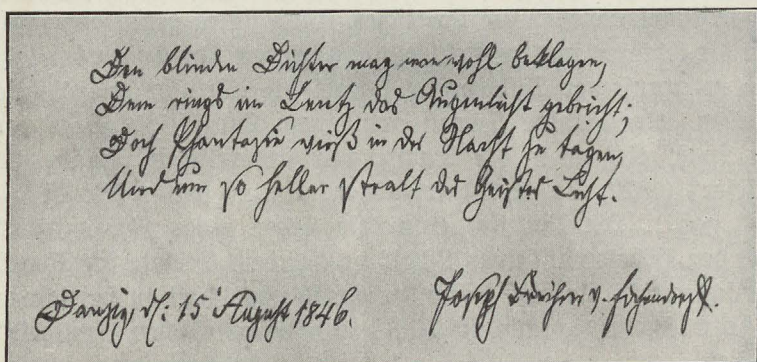 Den blinden Dichter mag man wohl beklagen,
Dem rings im Lentz das Augenlicht gebricht;
Doch Phantasie weiß in der Nacht zu tagen,
Und um so heller stralt des Geistes Licht.
Danzig, d: 15 August 1846.
Joseph Freiherr v. Eichendorff.